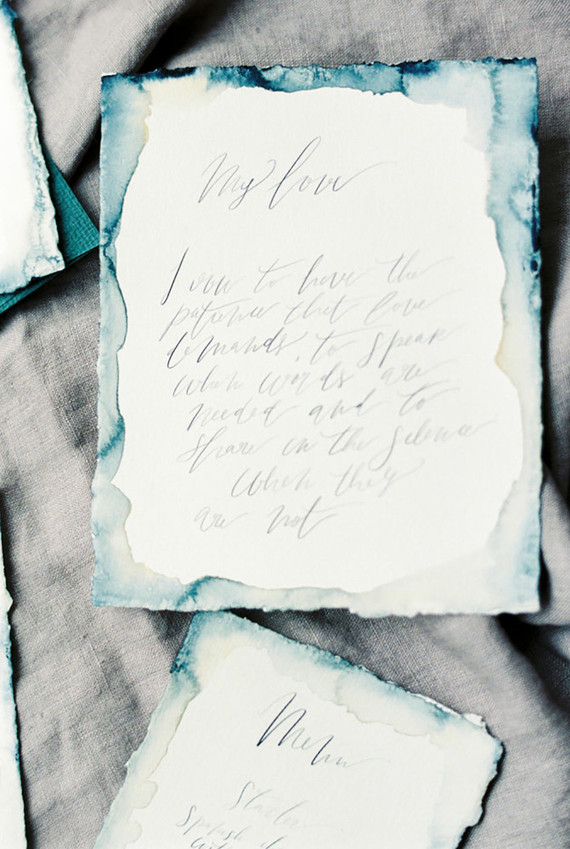 My love
I vow to have the
patience that love
demands, to speak
when words are
needed and to
share in the silence
when they
are not
Menu
Starter
Spanish
with